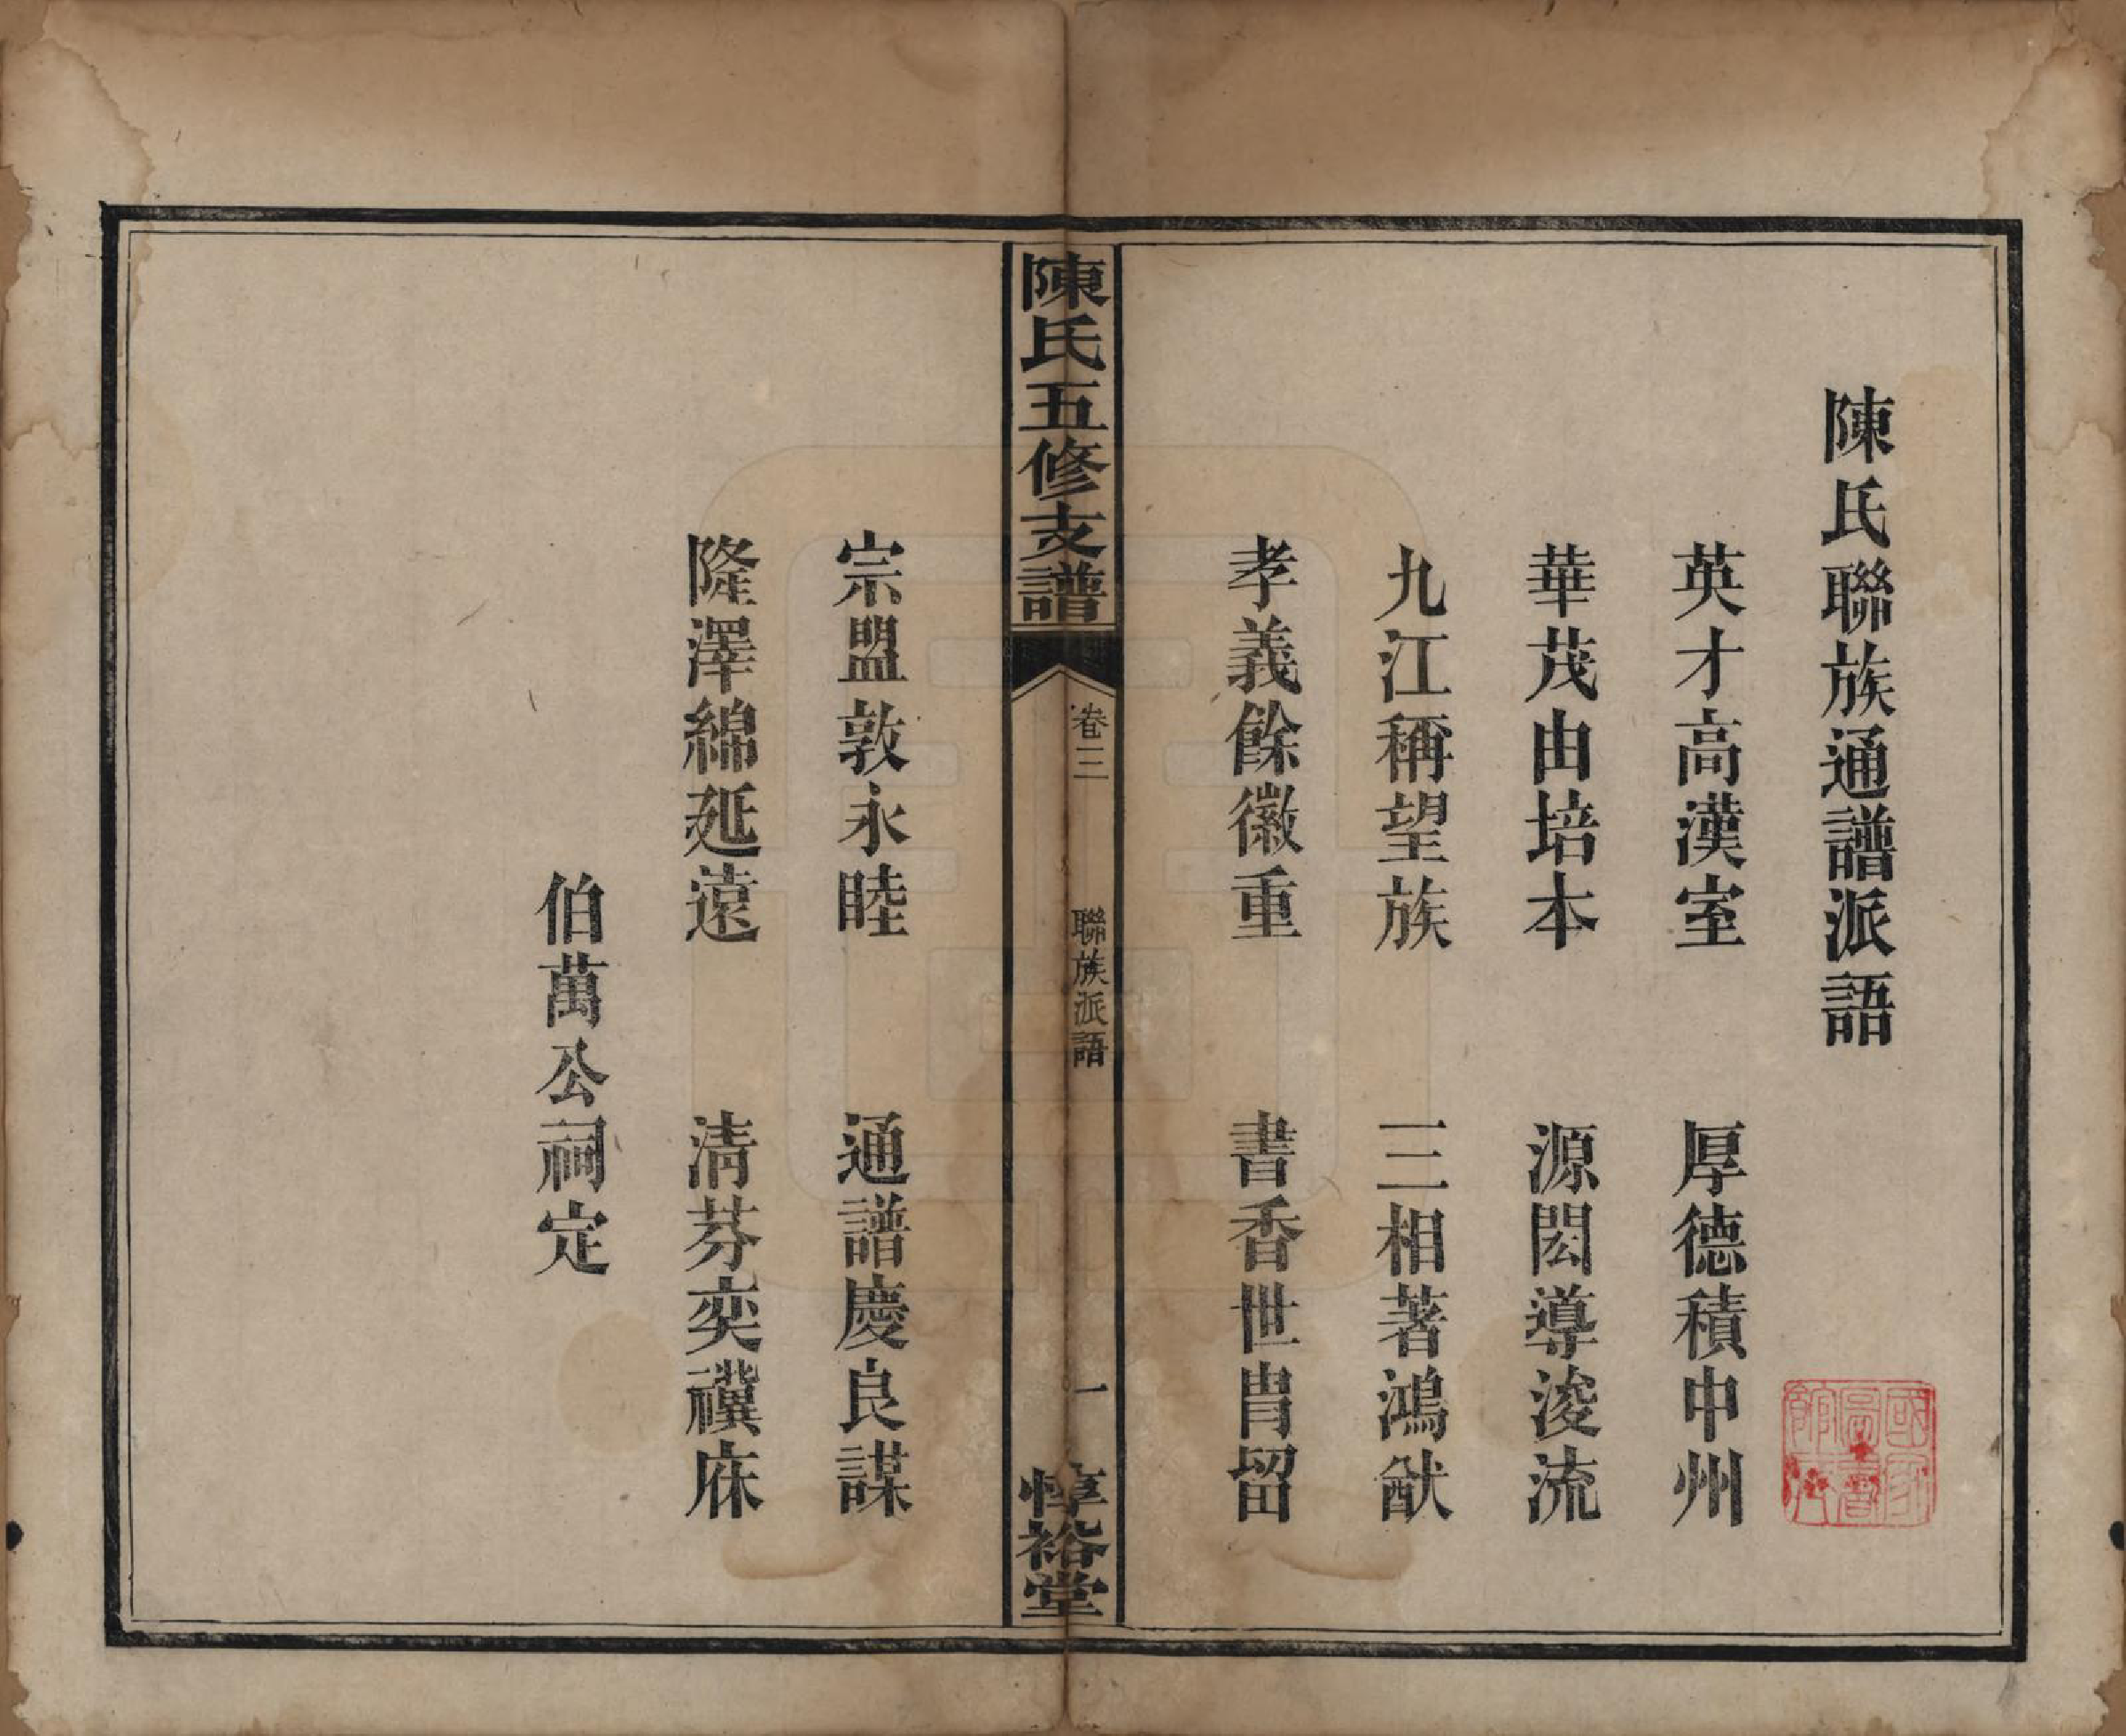 陳氏聯族通譜派語
英才高漢室　厚德積中州
華茂由培本　源閎導浚流
九江稱望族　三相著鴻猷
孝義餘徽重　書香世胄留
陳氏五修支譜
卷三
聯族派語
一
惇裕堂
宗盟敦永睦　通譜慶良謀
隆澤綿延遠　清芬奕禩庥
伯萬公祠定